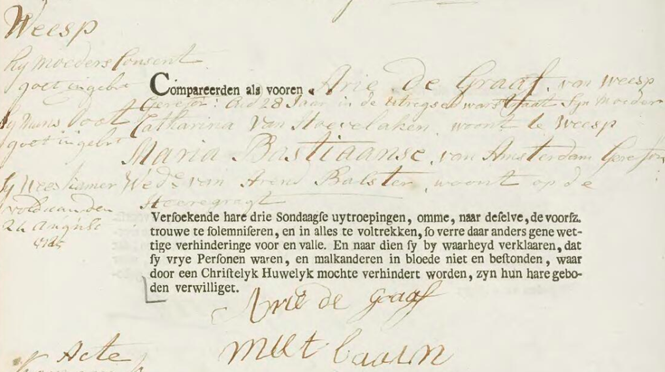 Weesp
hy moeders Consent
goet ingebr
Compareerden als vooren Arie de Graaf, van Weesp
Geref: oud 28 Jaar in de Utregsedwarsstraat zijn moeder
Catharina van Hoevelaken, woont te Weesp
goet ingebr
Maria Bastiaanse, van Amsterdam Geref
sy Weeskamer Wed: van Arend Balster, woont op de
voldaan den
Versoekende hare drie Sondaagse uytroepingen, omme, naar deselve, de voorsz.
trouwe te solemniseren, en in alles te voltrekken, so verre daar anders gene wet-
tige verhinderinge voor en valle. En naar dien sy by waarheyd verklaaren, dat
sy vrye Personen waren, en malkanderen in bloede niet en bestonden, waar
door een Christelyk Huwelyk mochte verhindert worden, zyn hun hare gebo-
den verwilliget.
Arie de Graaf
Acte